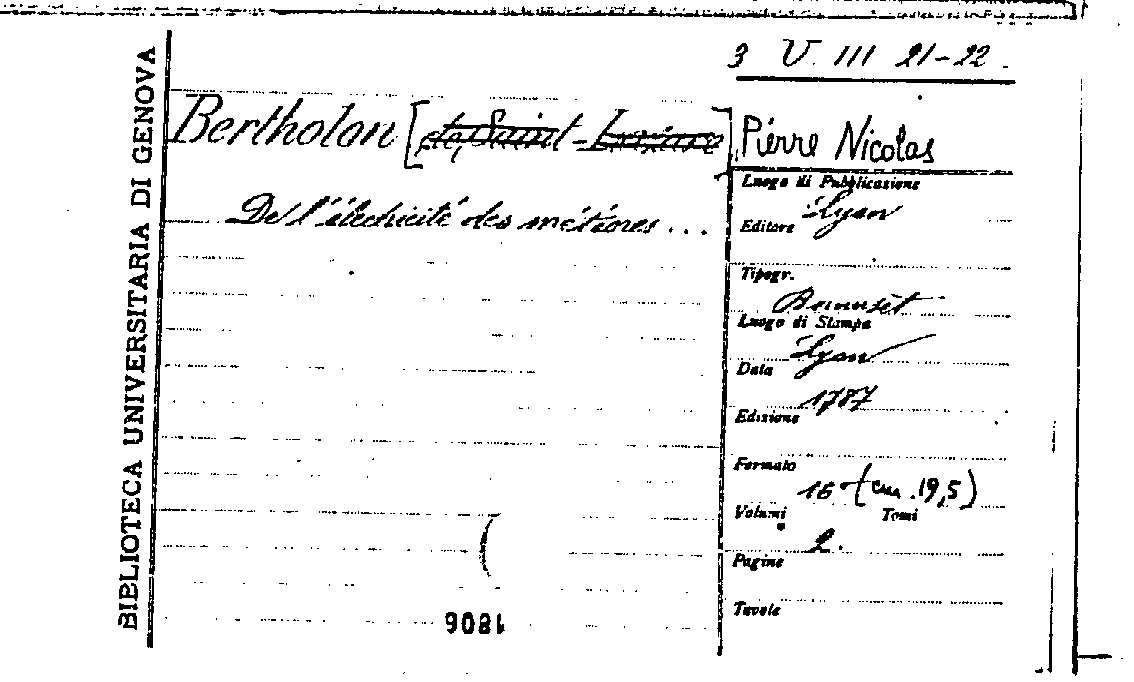 BIBLIOTECA UNIVERSITARIA DI GENOVA
3 V. III 21-22.
Bertholon [de Saint-Lazare] Pierre Nicolas
De l'électricité des météores...
Luogo di Pubblicazione
Lyon
Editore
Tipogr.
Bernuset
Luogo di Stampa
Lyon
Data
1787
Edizione
Formato
16 (cm. 19,5)
Volumi Tomi
2.
Pagine
Tavole
1806